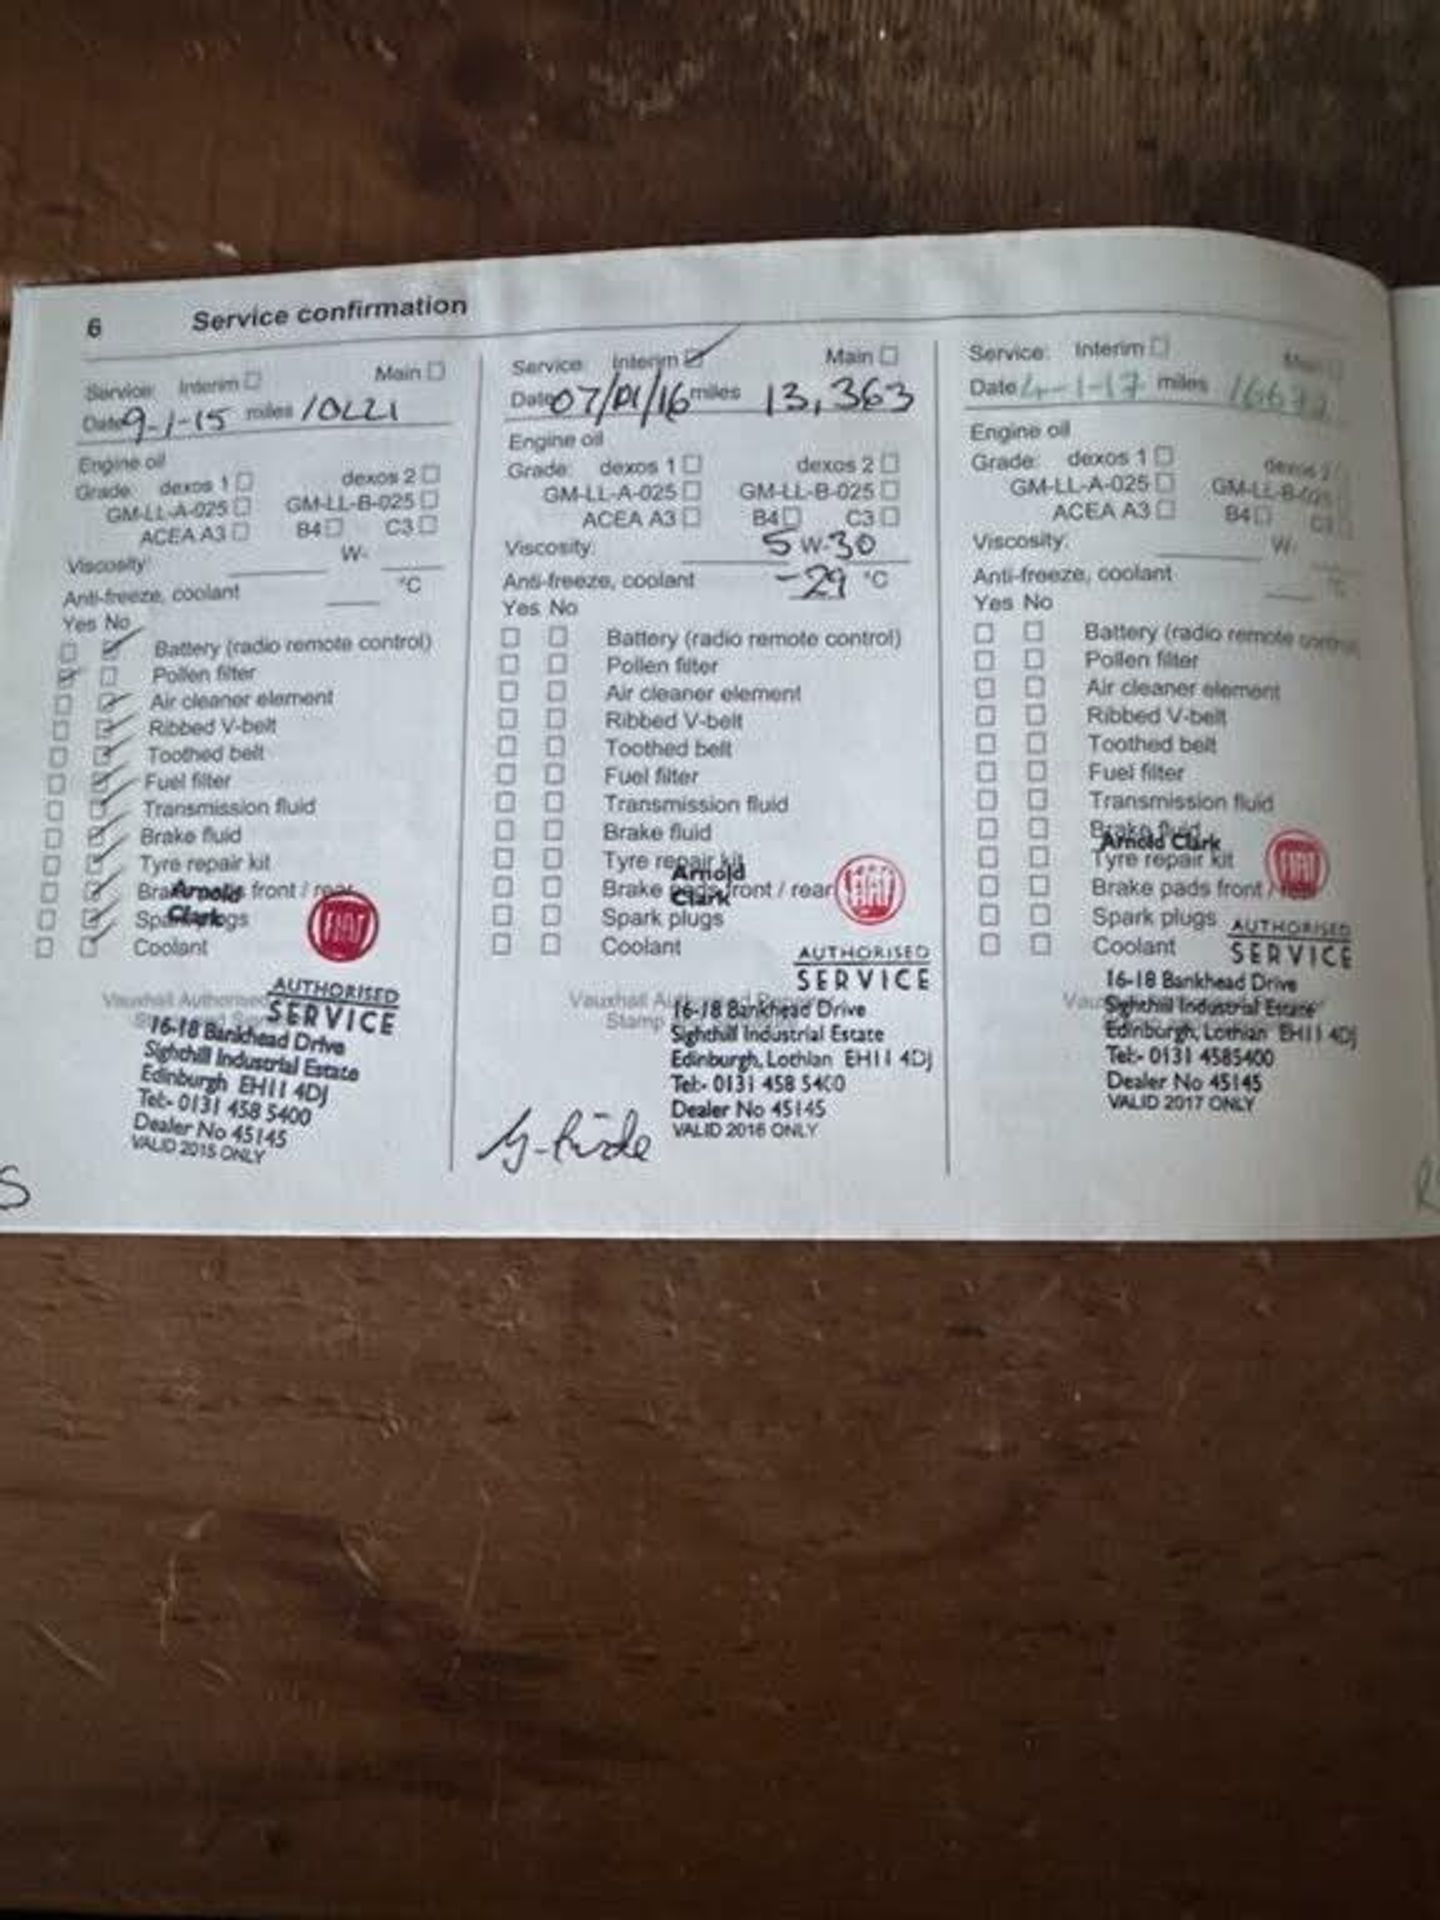 6 Service confirmation
Service: Interim Main
Date 9-1-15 miles
Engine oil
Grade: dexos 1 dexos 2
GM-LL-A-025 GM-LL-B-025
ACEA A3 B4 C3
Viscosity: W-
Anti-freeze, coolant °C
Yes No
Battery (radio remote control)
Pollen filter
Air cleaner element
Ribbed V-belt
Toothed belt
Fuel filter
Transmission fluid
Brake fluid
Tyre repair kit
front / rear
Arnold
Clark
FIAT
Coolant
Vauxhall Authorised
AUTHORISED
SERVICE
16-18 Bankhead Drive
Sighthill Industrial Estate
Edinburgh EH11 4DJ
Tel:- 0131 458 5400
Dealer No 45145
VALID 2015 ONLY
Service: Interim Main
Date 07/01/16 miles 13,363
Engine oil
Grade: dexos 1 dexos 2
GM-LL-A-025 GM-LL-B-025
ACEA A3 B4 C3
Viscosity: 5 W-30
Anti-freeze, coolant -29 °C
Yes No
Battery (radio remote control)
Pollen filter
Air cleaner element
Ribbed V-belt
Toothed belt
Fuel filter
Transmission fluid
Brake fluid
Tyre repair kit
Arnold
Brake pads front / rear
Clark
FIAT
Spark plugs
Coolant
AUTHORISED
SERVICE
Vauxhall
Stamp
16-18 Bankhead Drive
Sighthill Industrial Estate
Edinburgh, Lothian EH11 4DJ
Tel:- 0131 458 5400
Dealer No 45145
VALID 2016 ONLY
Service: Interim Main
Date 4-1-17 miles
Engine oil
Grade: dexos 1 dexos 2
GM-LL-A-025 GM-LL-B-025
ACEA A3 B4 C3
Viscosity: W-
Anti-freeze, coolant °C
Yes No
Battery (radio remote control)
Pollen filter
Air cleaner element
Ribbed V-belt
Toothed belt
Fuel filter
Transmission fluid
Brake fluid
Arnold Clark
Tyre repair kit
FIAT
Brake pads front / rear
Spark plugs
AUTHORISED
Coolant
SERVICE
16-18 Bankhead Drive
Sighthill Industrial Estate
Edinburgh, Lothian EH11 4DJ
Tel:- 0131 4585400
Dealer No 45145
VALID 2017 ONLY